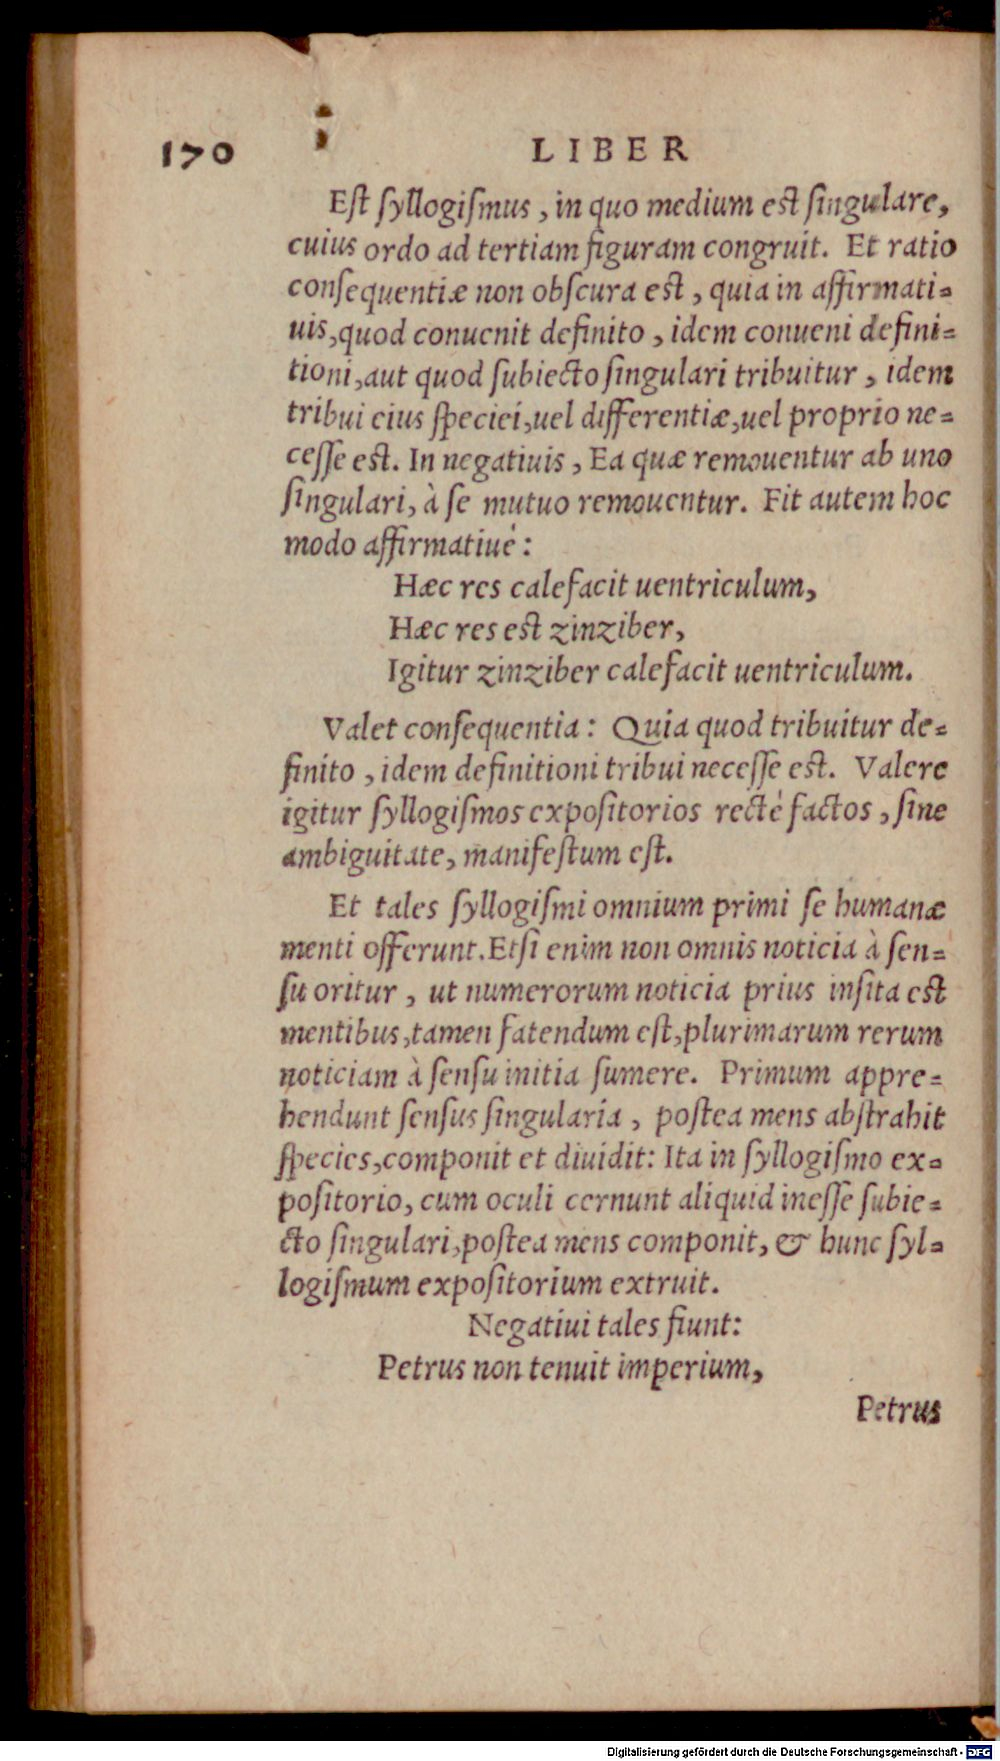 170 LIBER
Est ſyllogiſmus, in quo medium est ſingulare,
cuius ordo ad tertiam figuram congruit. Et ratio
conſequentiæ non obſcura est, quia in affirmati=
uis, quod conuenit definito, idem conueni defini=
tioni, aut quod ſubiecto ſingulari tribuitur, idem
tribui eius ſpeciei, uel differentiæ, uel proprio ne=
ceſſe est. In negatiuis, Ea quæ remouentur ab uno
ſingulari, à ſe mutuo remouentur. Fit autem hoc
modo affirmatiuè:
Hæc res calefacit uentriculum,
Hæc res est zinziber,
Igitur zinziber calefacit uentriculum.
Valet conſequentia: Quia quod tribuitur de=
finito, idem definitioni tribui neceſſe est. Valere
igitur ſyllogiſmos expoſitorios rectè factos, ſine
ambiguitate, manifeſtum eſt.
Et tales ſyllogiſmi omnium primi ſe humanæ
menti offerunt. Etſi enim non omnis noticia à ſen=
ſu oritur, ut numerorum noticia prius inſita est
mentibus, tamen fatendum eſt, plurimarum rerum
noticiam à ſenſu initia ſumere. Primum appre=
hendunt ſenſus ſingularia, poſtea mens abſtrahit
ſpecies, componit et diuidit: Ita in ſyllogiſmo ex=
poſitorio, cum oculi cernunt aliquid ineſſe ſubie=
cto ſingulari, poſtea mens componit, & hunc ſyl=
logiſmum expoſitorium extruit.
Negatiui tales fiunt:
Petrus non tenuit imperium,
Petrus
Digitalisierung gefördert durch die Deutsche Forschungsgemeinschaft - DFG